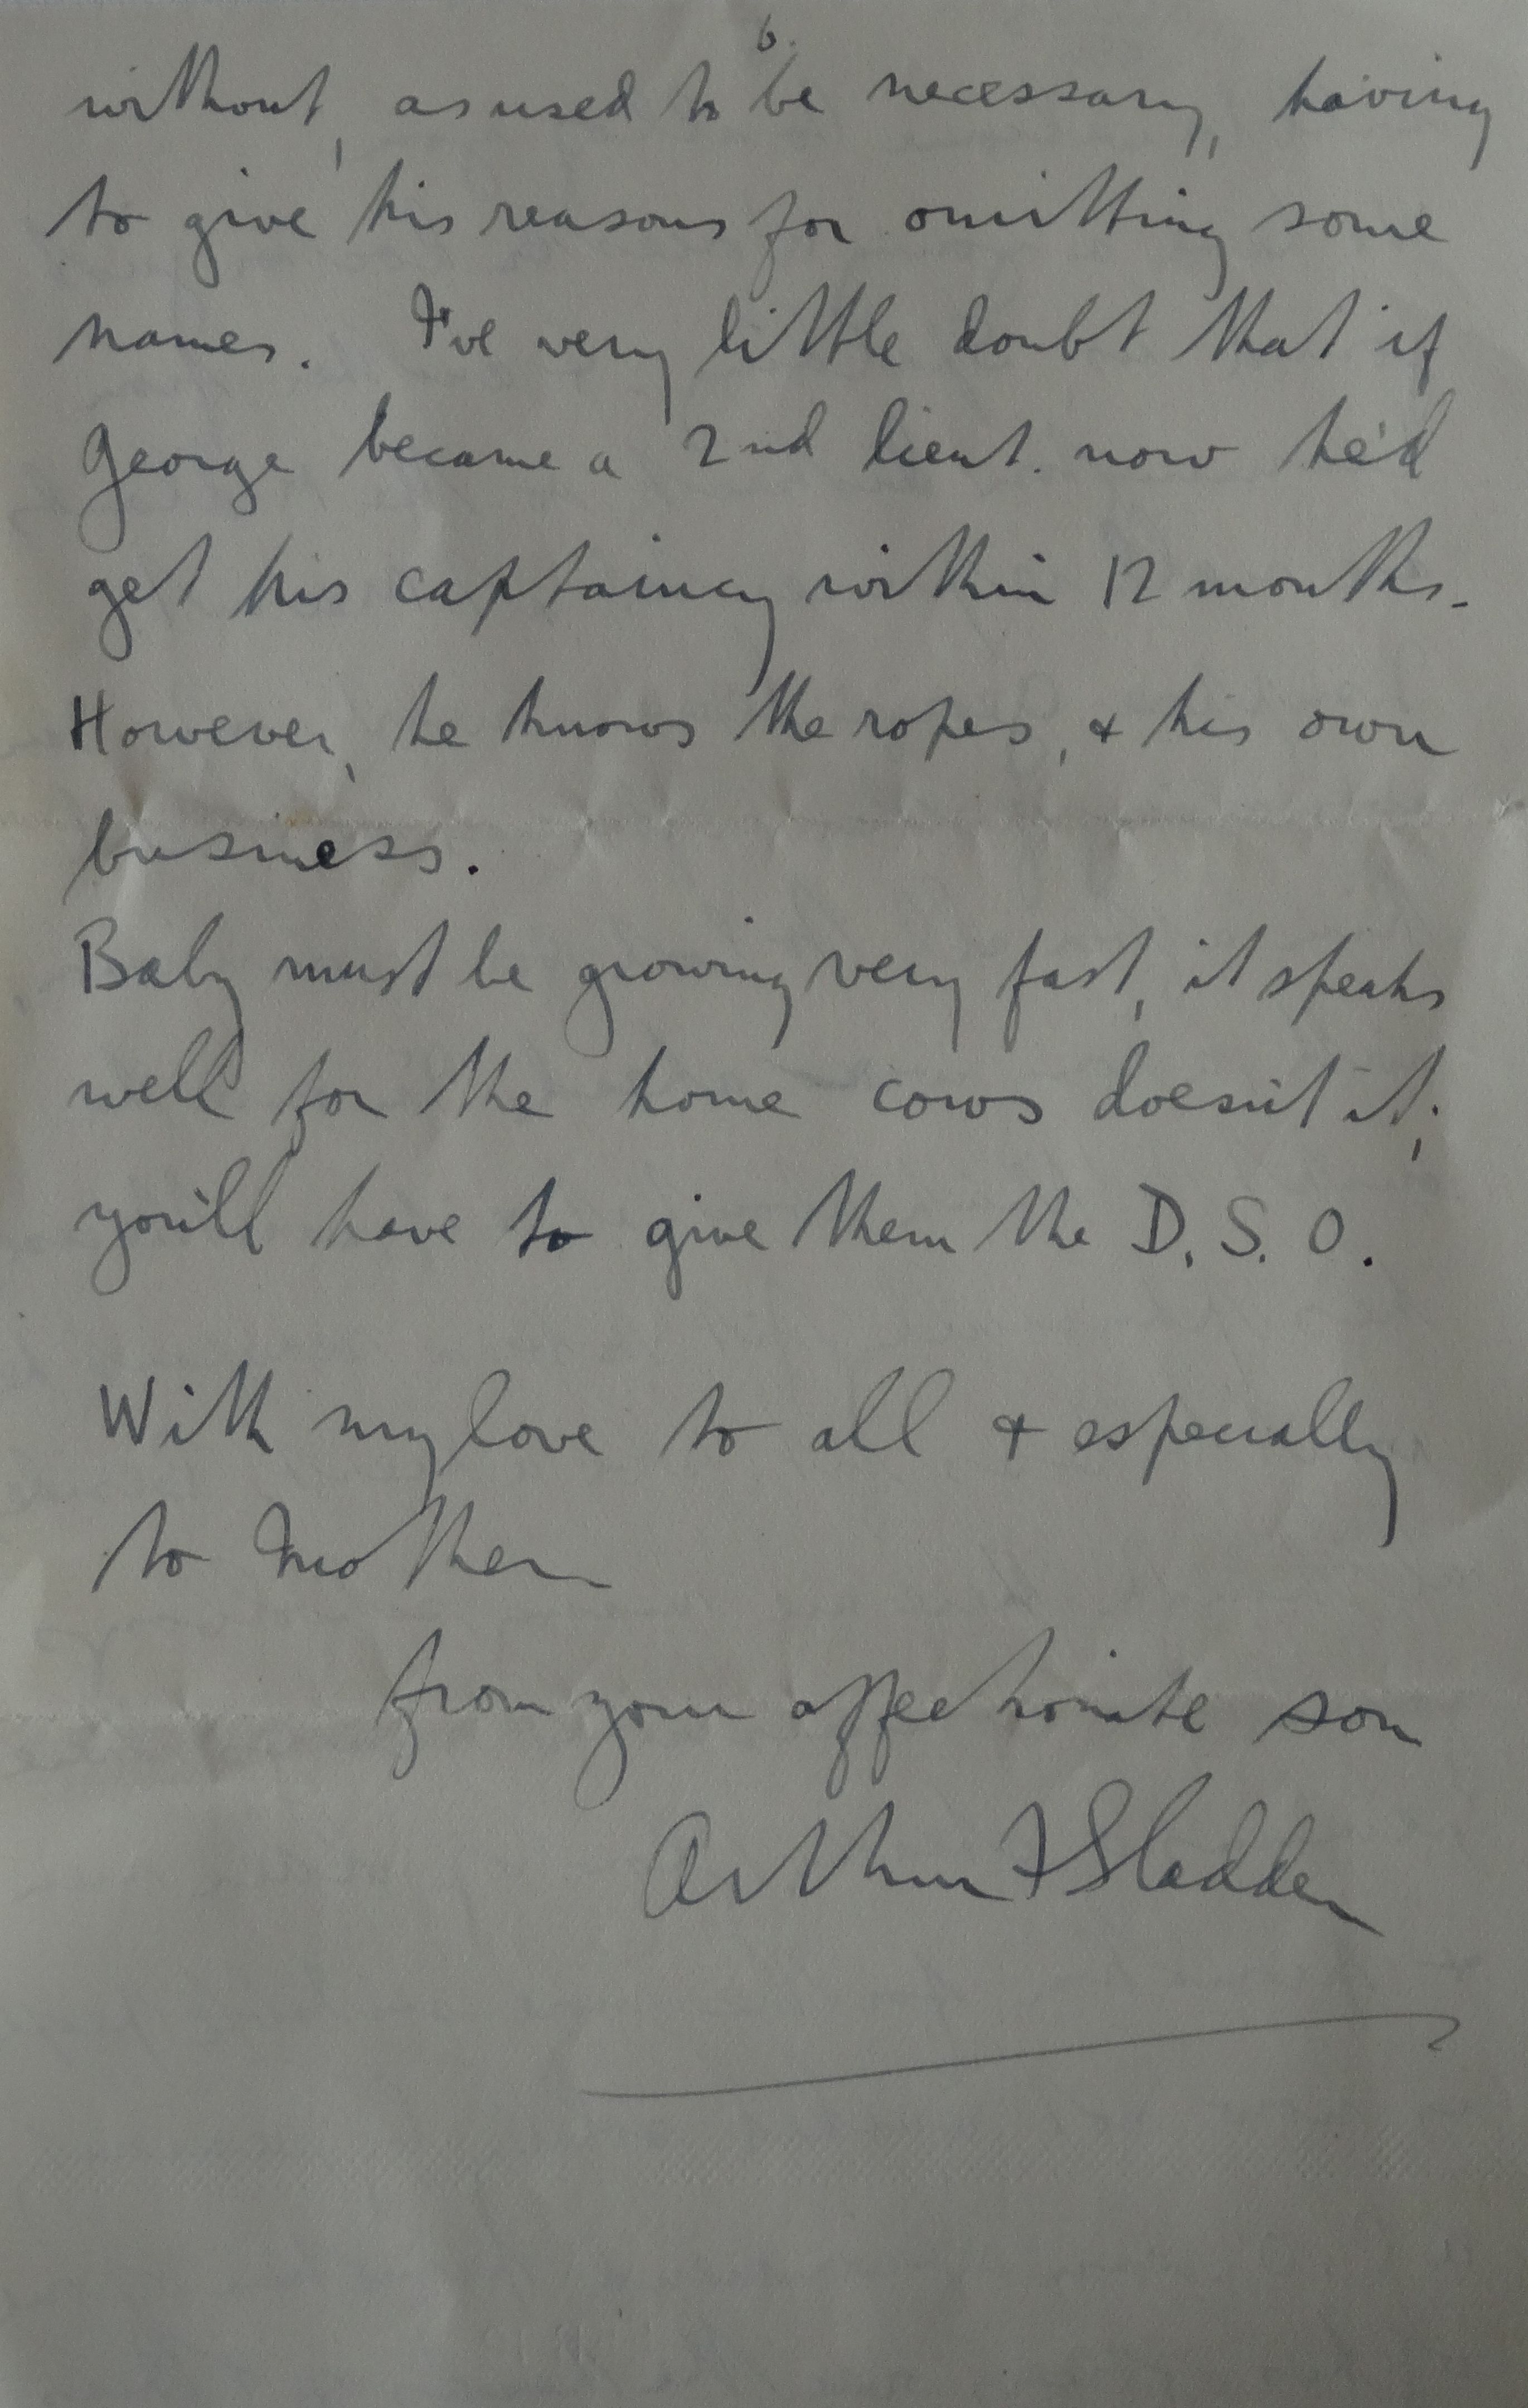 6.
without, as used to be necessary, having
to give his reasons for omitting some
names. I've very little doubt that if
George became a 2nd lieut. now he'd
get his captaincy within 12 months.
However, he knows the ropes, & his own
business.
Baby must be growing very fast, it speaks
well for the home cows doesn't it;
you'll have to give them the D.S.O.
With my love to all & especially
to Mother
from your affectionate son
Arthur F Sladden